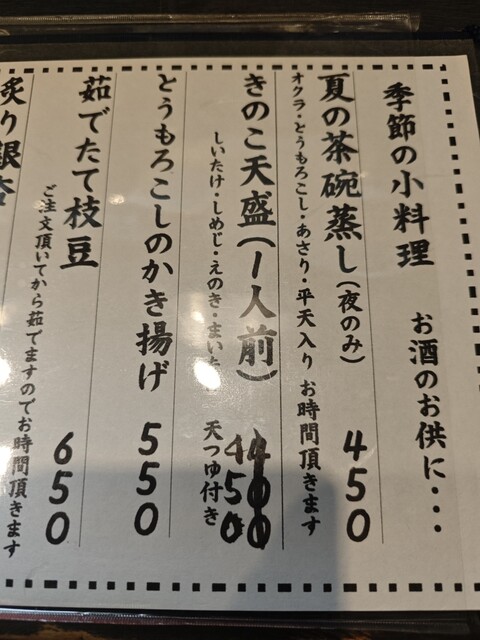 季節の小料理
お酒のお供に・・・
夏の茶碗蒸し(夜のみ) 450
オクラ・とうもろこし・あさり・平天入り お時間頂きます
きのこ天盛(1人前) 450
しいたけ・しめじ・えのき・まいた
天つゆ付き
とうもろこしのかき揚げ 550
茹でたて枝豆 650
ご注文頂いてから茹でますのでお時間頂きます
炙り銀杏